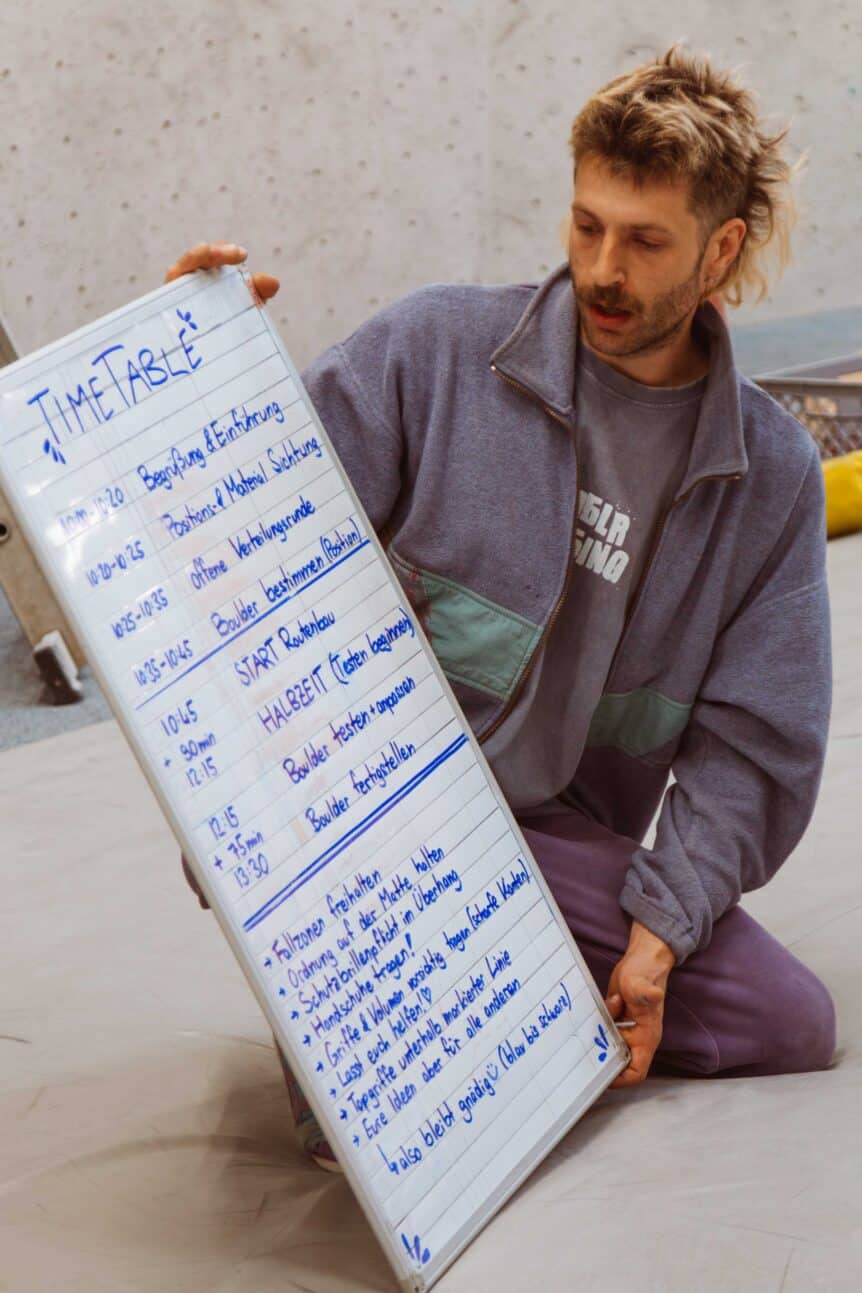 TIMETABLE
10:00-10:20 Begrüßung & Einführung
10:20-10:25 Positions- & Material Sichtung
10:25-10:35 offene Verteilungsrunde
10:35-10:45 Boulder bestimmen (Position)
10:45 START Routenbau
+ 90min HALBZEIT (Testen beginnen)
12:15 Boulder testen + anpassen
12:15 Boulder fertigstellen
+ 75min
13:30
→ Fallzonen freihalten
→ Ordnung auf der Matte halten
→ Schutzbrillenpflicht im Überhang
→ Handschuhe tragen!
→ Griffe & Volumen vorsichtig tragen (scharfe Kanten)
→ Lasst euch helfen! ♡
→ Topgriffe unterhalb markierter Linie
→ Eure Ideen aber für alle anderen
↳ also bleibt gnädig (blau bis schwarz)